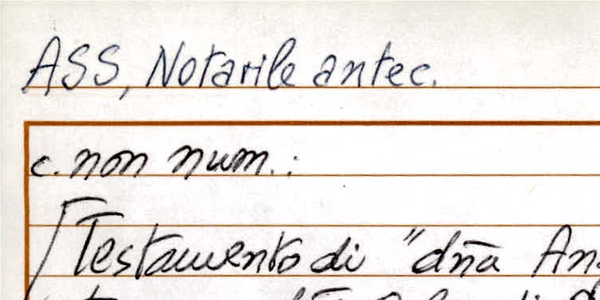 ASS, Notarile antec.
c. non num.:
[Testamento di "dña An